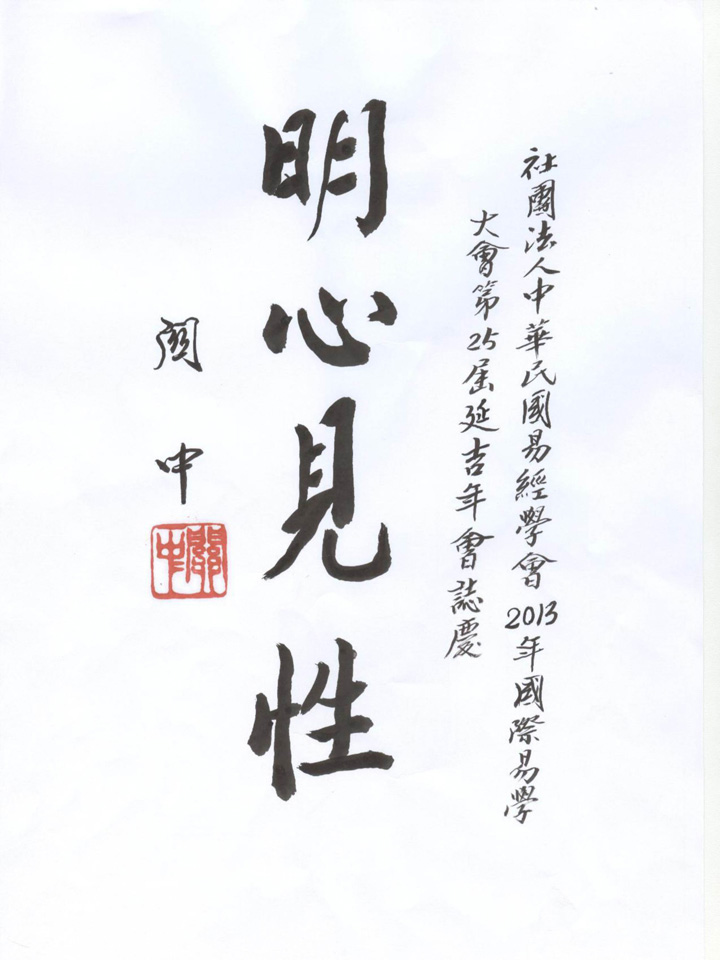 社團法人中華民國易經學會2013年國際易學
大會第25屆延吉年會誌慶
明心見性
關中
關中